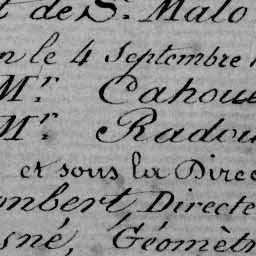 t de St. Malo
n le 4 Septembre
Mr. Cahoue
Mr. Radou
et sous la Direc
mbert, Directe
sné, Géomètr